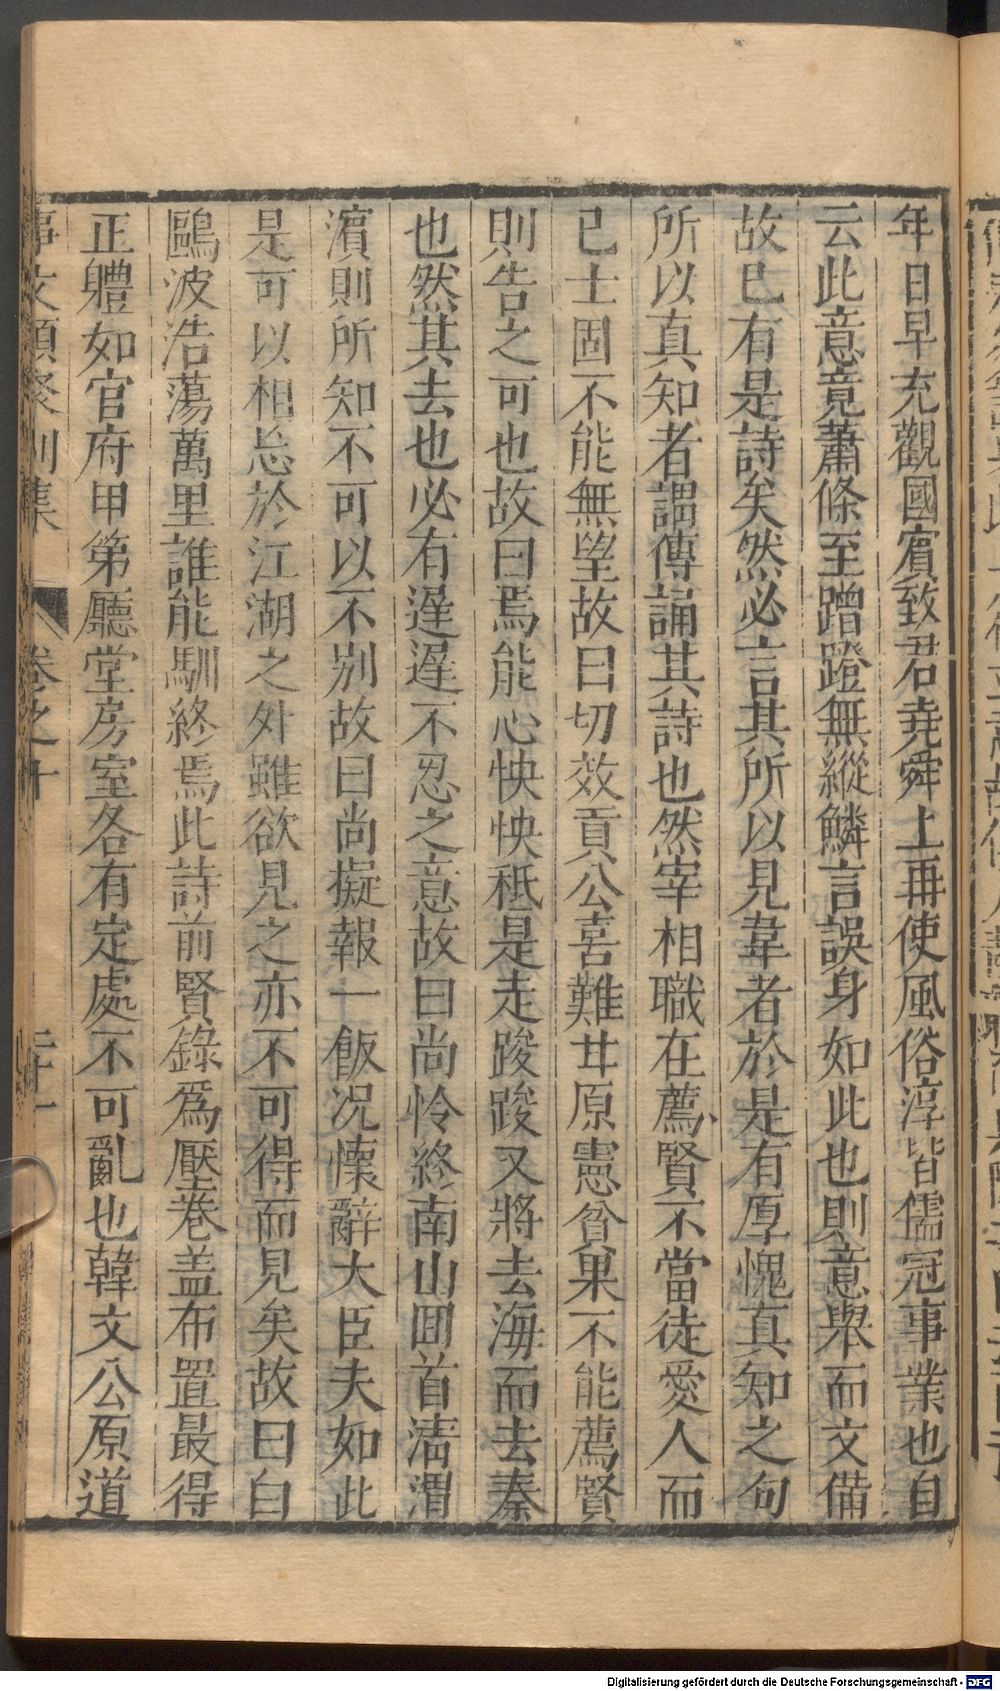 年日早充觀國賓致君堯舜上再使風俗淳皆儒冠事業也自
云此意竟蕭條至蹭蹬無縱鱗言誤身如此也則意舉而文備
故已有是詩矣然必言其所以見韋者於是有厚愧真知之句
所以真知者謂傳誦其詩也然宰相職在薦賢不當徒愛人而
已士固不能無望故曰切效貢公喜難甘原憲貧果不能薦賢
則告之可也故曰焉能心怏怏秪是走踆踆又將去海而去秦
也然其去也必有遲遲不忍之意故曰尚怜終南山囬首清渭
濵則所知不可以不别故曰尚擬報一飯况懐辭大臣夫如此
是可以相忘於江湖之外雖欲見之亦不可得而見矣故曰白
鷗波浩蕩萬里誰能馴終焉此詩前賢錄爲壓卷盖布置最得
正軆如官府甲第廳堂房室各有定處不可亂也韓文公原道
事文類聚别集 卷之十 二十一
Digitalisierung gefördert durch die Deutsche Forschungsgemeinschaft - DFG